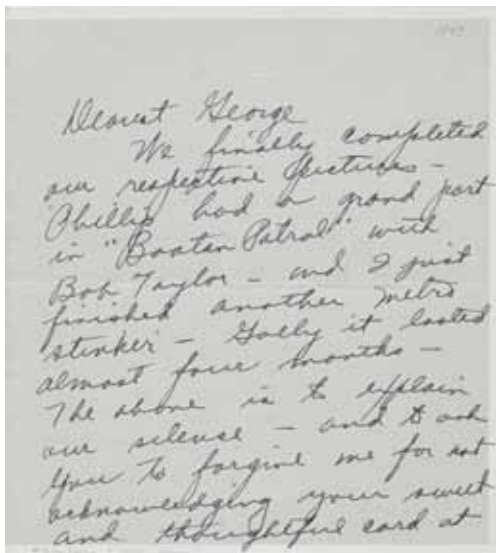 Dearest George
We finally completed
our respective pictures –
Phillip had a grand part
in "Baatan Patrol" with
Bob Taylor – and I just
finished another Metro
stinker – Golly it lasted
almost four months –
The above is to explain
our silence – and to ask
you to forgive me for not
acknowledging your sweet
and thoughtful card at